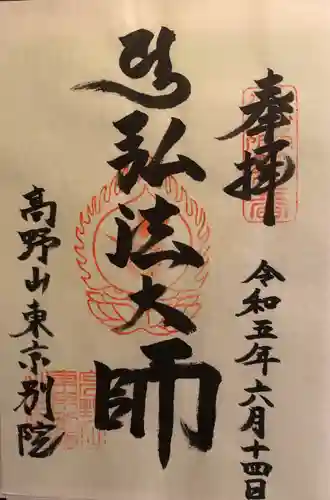 奉拝
令和五年六月十四日
弘法大師
高野山東京別院